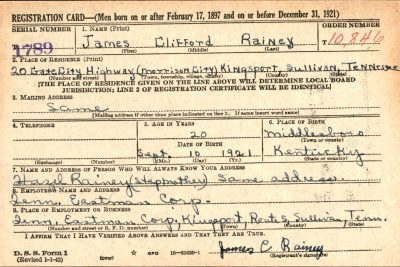 REGISTRATION CARD—(Men born on or after February 17, 1897 and on or before December 31, 1921)
SERIAL NUMBER 1. NAME (Print) ORDER NUMBER
1789 James Clifford Rainey 10,846
(First) (Middle) (Last)
2. PLACE OF RESIDENCE (Print)
20 Gate City Highway (Morrison City) Kingsport, Sullivan, Tennessee
(Number and street) (Town, township, village, or city) (County) (State)
[THE PLACE OF RESIDENCE GIVEN ON THE LINE ABOVE WILL DETERMINE LOCAL BOARD
JURISDICTION; LINE 2 OF REGISTRATION CERTIFICATE WILL BE IDENTICAL]
3. MAILING ADDRESS
Same
[Mailing address if other than place indicated on line 2. If same insert word same]
4. TELEPHONE 5. AGE IN YEARS 6. PLACE OF BIRTH
20 Middlesboro
DATE OF BIRTH (Town or county)
Sept. 10 1921 Kentucky
(Exchange) (Number) (Mo.) (Day) (Yr.) (State or country)
7. NAME AND ADDRESS OF PERSON WHO WILL ALWAYS KNOW YOUR ADDRESS
Hazel Rainey (stepmother) Same address
8. EMPLOYER'S NAME AND ADDRESS
Tenn. Eastman Corp.
9. PLACE OF EMPLOYMENT OR BUSINESS
Tenn. Eastman Corp, Kingsport Sullivan Tenn.
(Number and street or R. F. D. number) (Town) (County) (State)
I AFFIRM THAT I HAVE VERIFIED ABOVE ANSWERS AND THAT THEY ARE TRUE.
D. S. S. Form 1 James C Rainey
(Revised 1-1-42) GPO (Registrant's signature)